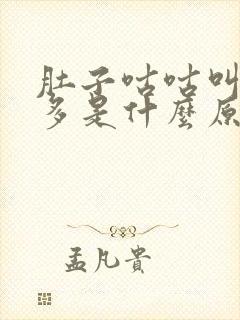 肚子咕咕叫
多是什麼原
孟凡貴